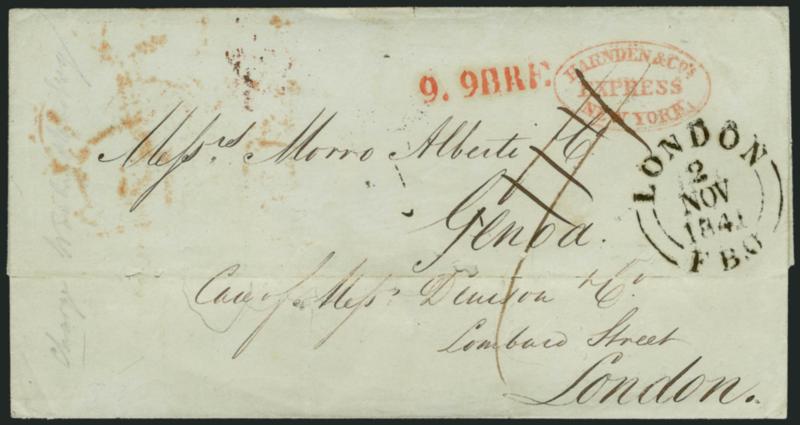 9. 9BRF.
HARNDEN & CO'S
EXPRESS
NEW YORK.
LONDON
2
NOV
1841
F B O
Mess.rs Morro Alberti & C.
Genoa.
Care of Mess.rs Denison & C.o
Lombard Street
London.
Charge